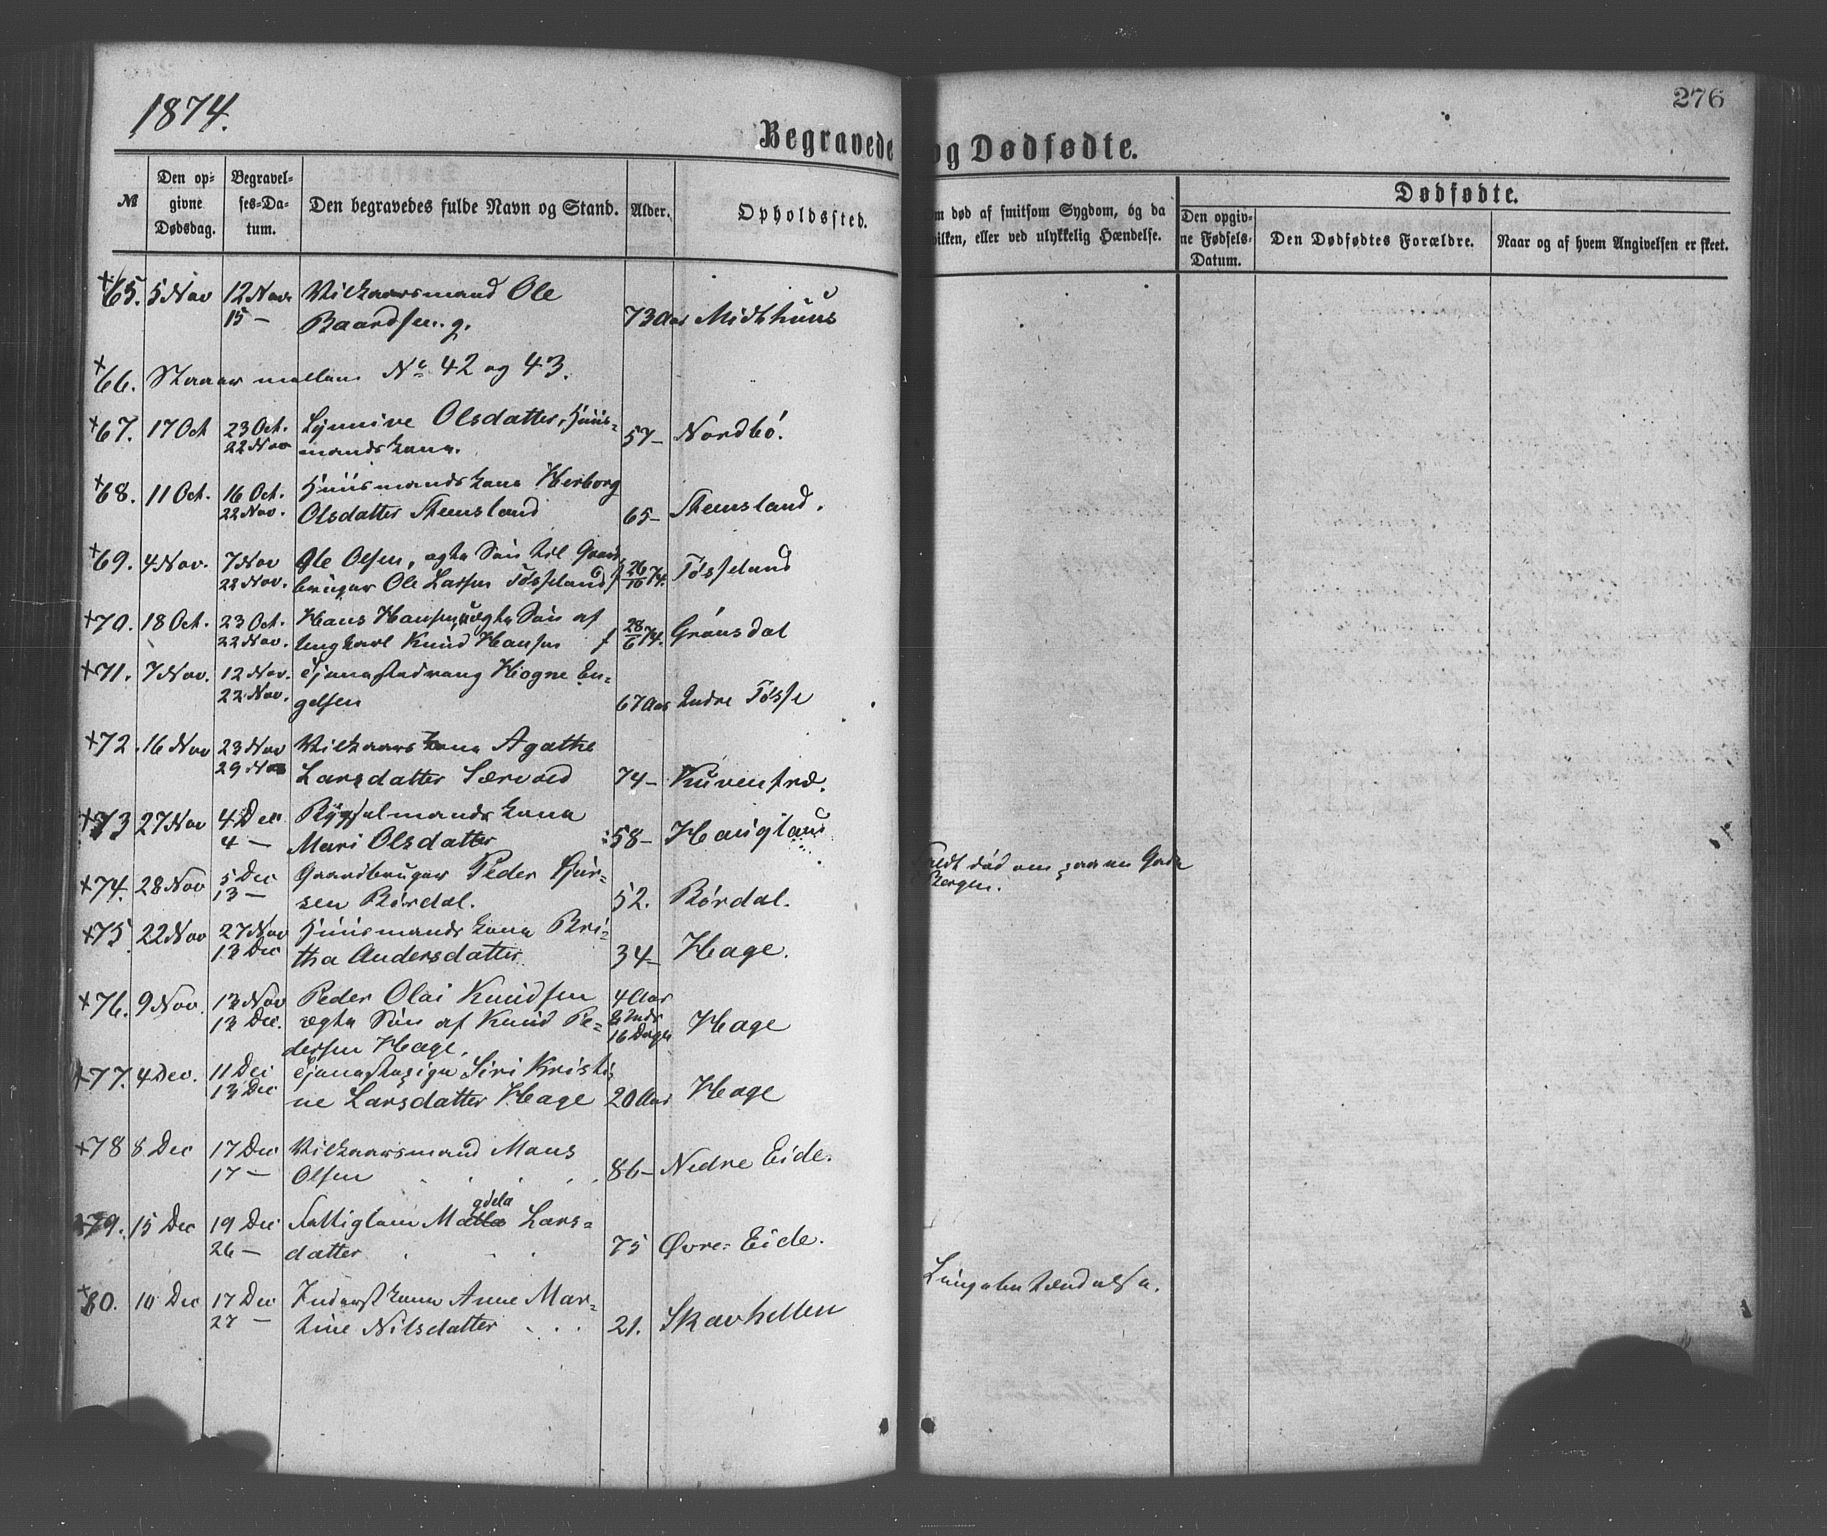 1874.
276
Begravede og Dødfødte.
№
Den op-
givne
Dødsdag.
Begravel-
ses-Da-
tum.
Den begravedes fulde Navn og Stand.
Alder.
Opholdssted.
m død af smitsom Sygdom, og da
vilken, eller ved ulykkelig Hændelse.
Dødfødte.
Den opgiv-
ne Fødsels-
Datum.
Den Dødfødtes Forældre.
Naar og af hvem Angivelsen er skeet.
+65. 5 Nov 12 Nov. Vilkaarsmand Ole
15 — Baardsen. g. 73 Aar Midthuus
+66. Staaer mellem No 42 og 43.
+67. 17 Oct 23 Oct. Olsdatter, Huus-
22 Nov mandskone. 57 — Nordbø.
+68. 11 Oct. 16 Oct. Huusmandskone Herborg
22 Nov. Olsdatter Stensland 65 — Stensland.
+69. 4 Nov. 7 Nov Ole Olsen, ægte Søn til Gaard-
22 Nov. bruger Ole Larsen Tøsseland f 26/10 74. Tøsseland
+70. 18 Oct. 23 Oct. Hans Hansen, uægte Søn af
22 Nov. Ungkarl Knud Hansen f 28/6 74. Grønsdal
+71. 7 Nov. 12 Nov. Tjenestedreng Hogne En-
22 Nov. gelsen 67 Aar Indre Tøsse
+72. 16 Nov 23 Nov Vilkaarskone Agathe
29 Nov Larsdatter Særvold 74 — Kuventræ.
+73 27 Nov 4 Dec Bygselmandskone
4 — Mari Olsdatter 58 — Haugland
+74. 28 Nov 5 Dec Gaardbruger Peder
13 — sen Børdal. 52. Børdal.
Faldt død om paa en Gade
Bergen.
+75. 22 Nov 27 Nov Huusmandskone Bri-
13 Dec tha Andersdatter 34 — Hage.
+76. 9 Nov. 13 Nov Peder Olai Knudsen 4 Aar
13 Dec. ægte Søn af Knud Pe-
dersen Hage. 16 Dage Hage
+77. 4 Dec. 11 Dec Tjenestepige Siri Kristi-
13 Dec ne Larsdatter Hage 20 Aar Hage
+78 8 Dec 17 Dec Vilkaarsmand Mons
17 — Olsen 86 — Nedre Eide.
+79. 15 Dec 19 Dec Fattiglem Magdela Lars-
26 — datter 75 Øvre-Eide.
+80. 10 Dec 17 Dec Inderstkone Anne Mar-
27 — tine Nilsdatter 21. Skarhellen
Lungebetændelse.